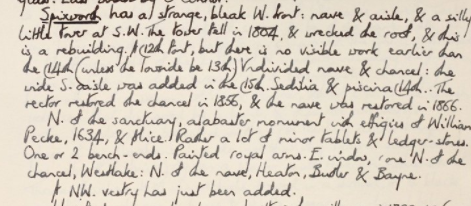 Spixworth has a strange, bleak W. front: nave & aisle, & a silly
little tower at S.W. The tower fell in 1804, & wrecked the roof, & this
is a rebuilding. 12th font, but there is no visible work earlier than
the 14th (unless the lowside be 13th) Undivided nave & chancel: the
wide S. aisle was added in the 15th. Sedilia & piscina 14th. The
rector restored the chancel in 1856, & the nave was restored in 1866.
N. of the sanctuary, alabaster monument with effigies of William
Pecke, 1634, & Alice. Rather a lot of minor tablets & ledger-stones.
One or 2 bench-ends. Painted royal arms. E. window, & one N. of the
chancel, Westlake: N. of the nave, Heaton, Butler & Bayne.
A NW. vestry has just been added.